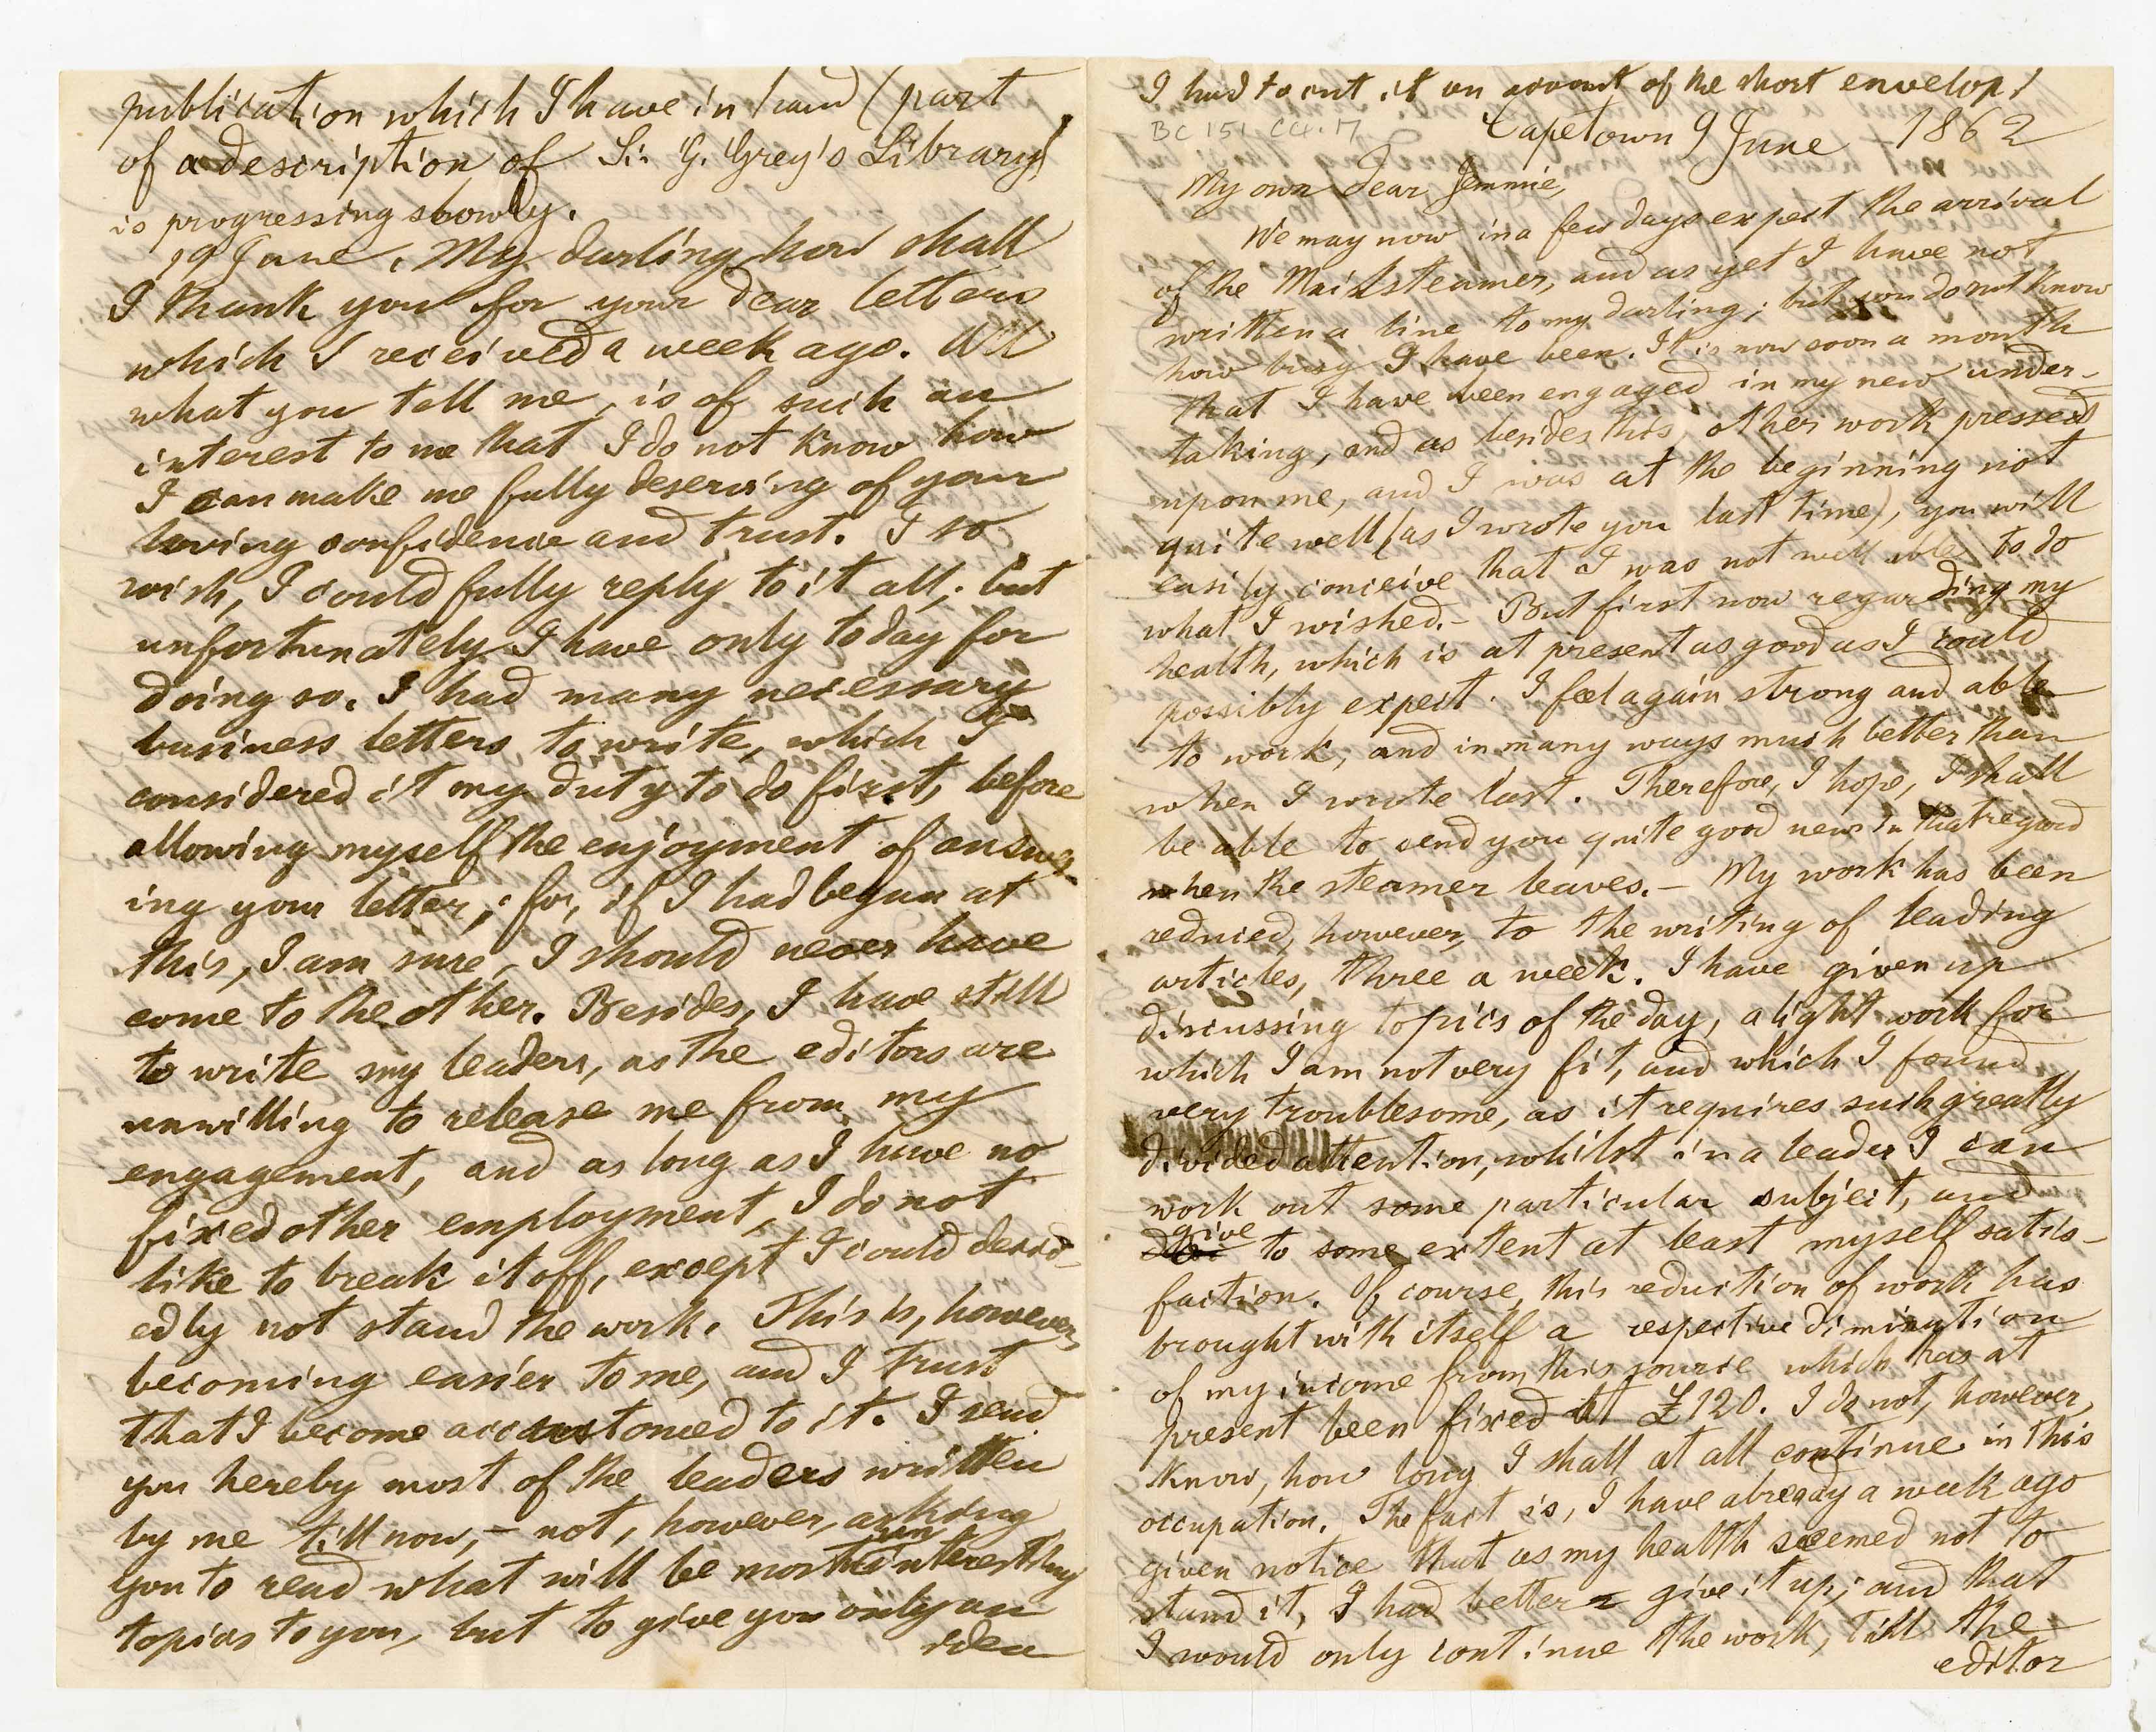 I had to cut it on account of the short envelop!
BC 151 C4.17
Capetown 9 June 1862
My own dear Jemmie,
We may now in a few days expect the arrival
of the Mail steamer, and as yet I have not
written a line to my darling; but you do not know
how busy I have been. It is now soon a month
that I have been engaged in my new under-
taking, and as besides this other work pressed
upon me, and I was at the beginning not
quite well (as I wrote you last time), you will
easily conceive that I was not well able to do
what I wished. - But first now regarding my
health, which is at present as good as I could
possibly expect. I feel again strong and able
to work, and in many ways much better than
when I wrote last. Therefore, I hope, I shall
be able to send you quite good news in that regard
when the steamer leaves. - My work has been
reduced, however, to the writing of leading
articles, three a week. I have given up
discussing topics of the day, a light work for
which I am not very fit, and which I found
very troublesome, as it requires such greatly
divided attention, whilst in a leader I can
work out some particular subject, and
give to some extent at least myself satis-
faction. Of course, this reduction of work has
brought with itself a respective diminution
of my income from this source which has at
present been fixed at £120. I do not, however,
know, how long I shall at all continue in this
occupation. The fact is, I have already a week ago
given notice that as my health seemed not to
stand it, I had better give it up; and that
I would only continue the work, till the
editor
publication which I have in hand (part
of a description of Sir G. Grey's Library)
is progressing slowly.
19 June. My darling how shall
I thank you for your dear letters
which I received a week ago. All
what you tell me, is of such an
interest to me that I do not know how
I can make me fully deserving of your
loving confidence and trust. I so
wish, I could fully reply to it all; but
unfortunately I have only today for
doing so. I had many necessary
business letters to write, which I
considered it my duty to do first, before
allowing myself the enjoyment of answer-
ing your letter; for, if I had begun at
this, I am sure, I should never have
come to the other. Besides, I have still
to write my leaders, as the editors are
unwilling to release me from my
engagement, and as long as I have no
fixed other employment, I do not
like to break it off, except I could decid-
edly not stand the work. This is, however,
becoming easier to me, and I trust
that I become accustomed to it. I send
you hereby most of the leaders written
by me till now, - not, however, asking
you to read what will be mostly uninteresting
topics to you, but to give you only an
idea